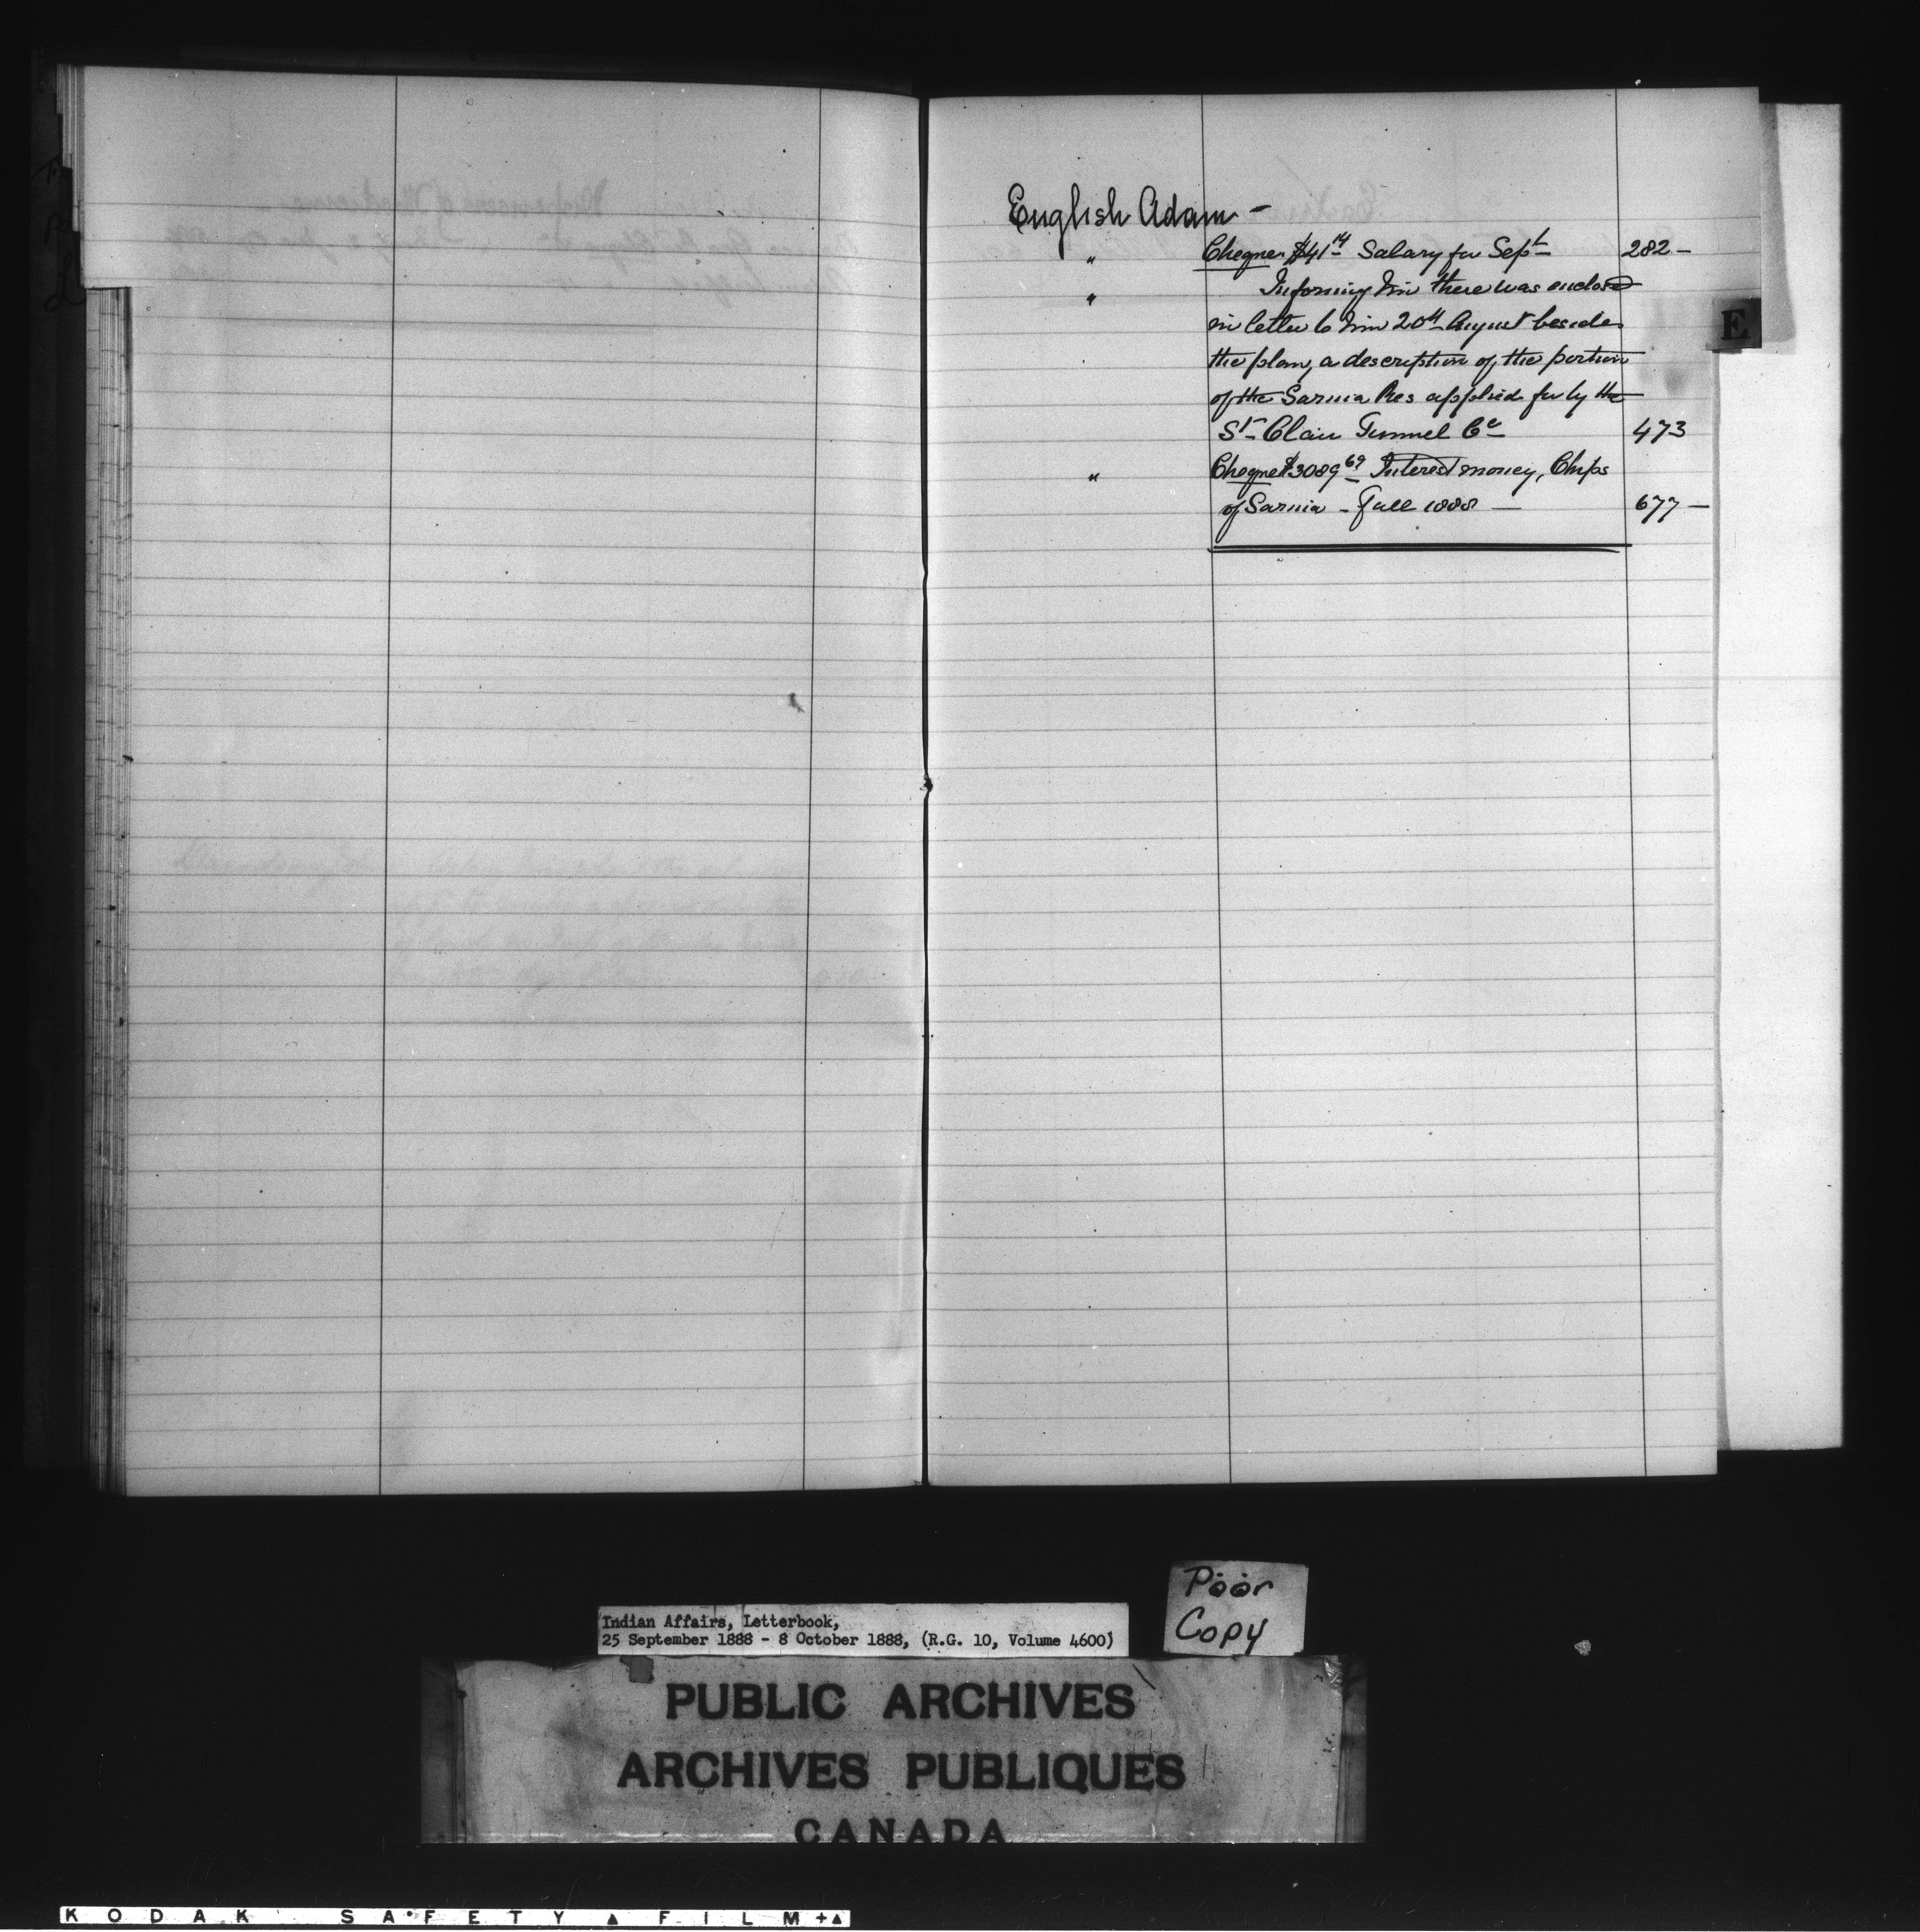 English Adam —
" Cheque $41 14 Salary for Sept 282 —
" Informing him there was enclosed
in letter to him 20th August besides
the plan, a description of the portion
of the Sarnia Res applied for by the
St. Clair Tunnel Co 473
" Cheque $3089 69 Interest money, Chips
of Sarnia — Fall 1888 — 677 —
E
Poor
Copy
Indian Affairs, Letterbook,
25 September 1888 - 8 October 1888, (R.G. 10, Volume 4600)
PUBLIC ARCHIVES
ARCHIVES PUBLIQUES
CANADA
KODAK SAFETY FILM